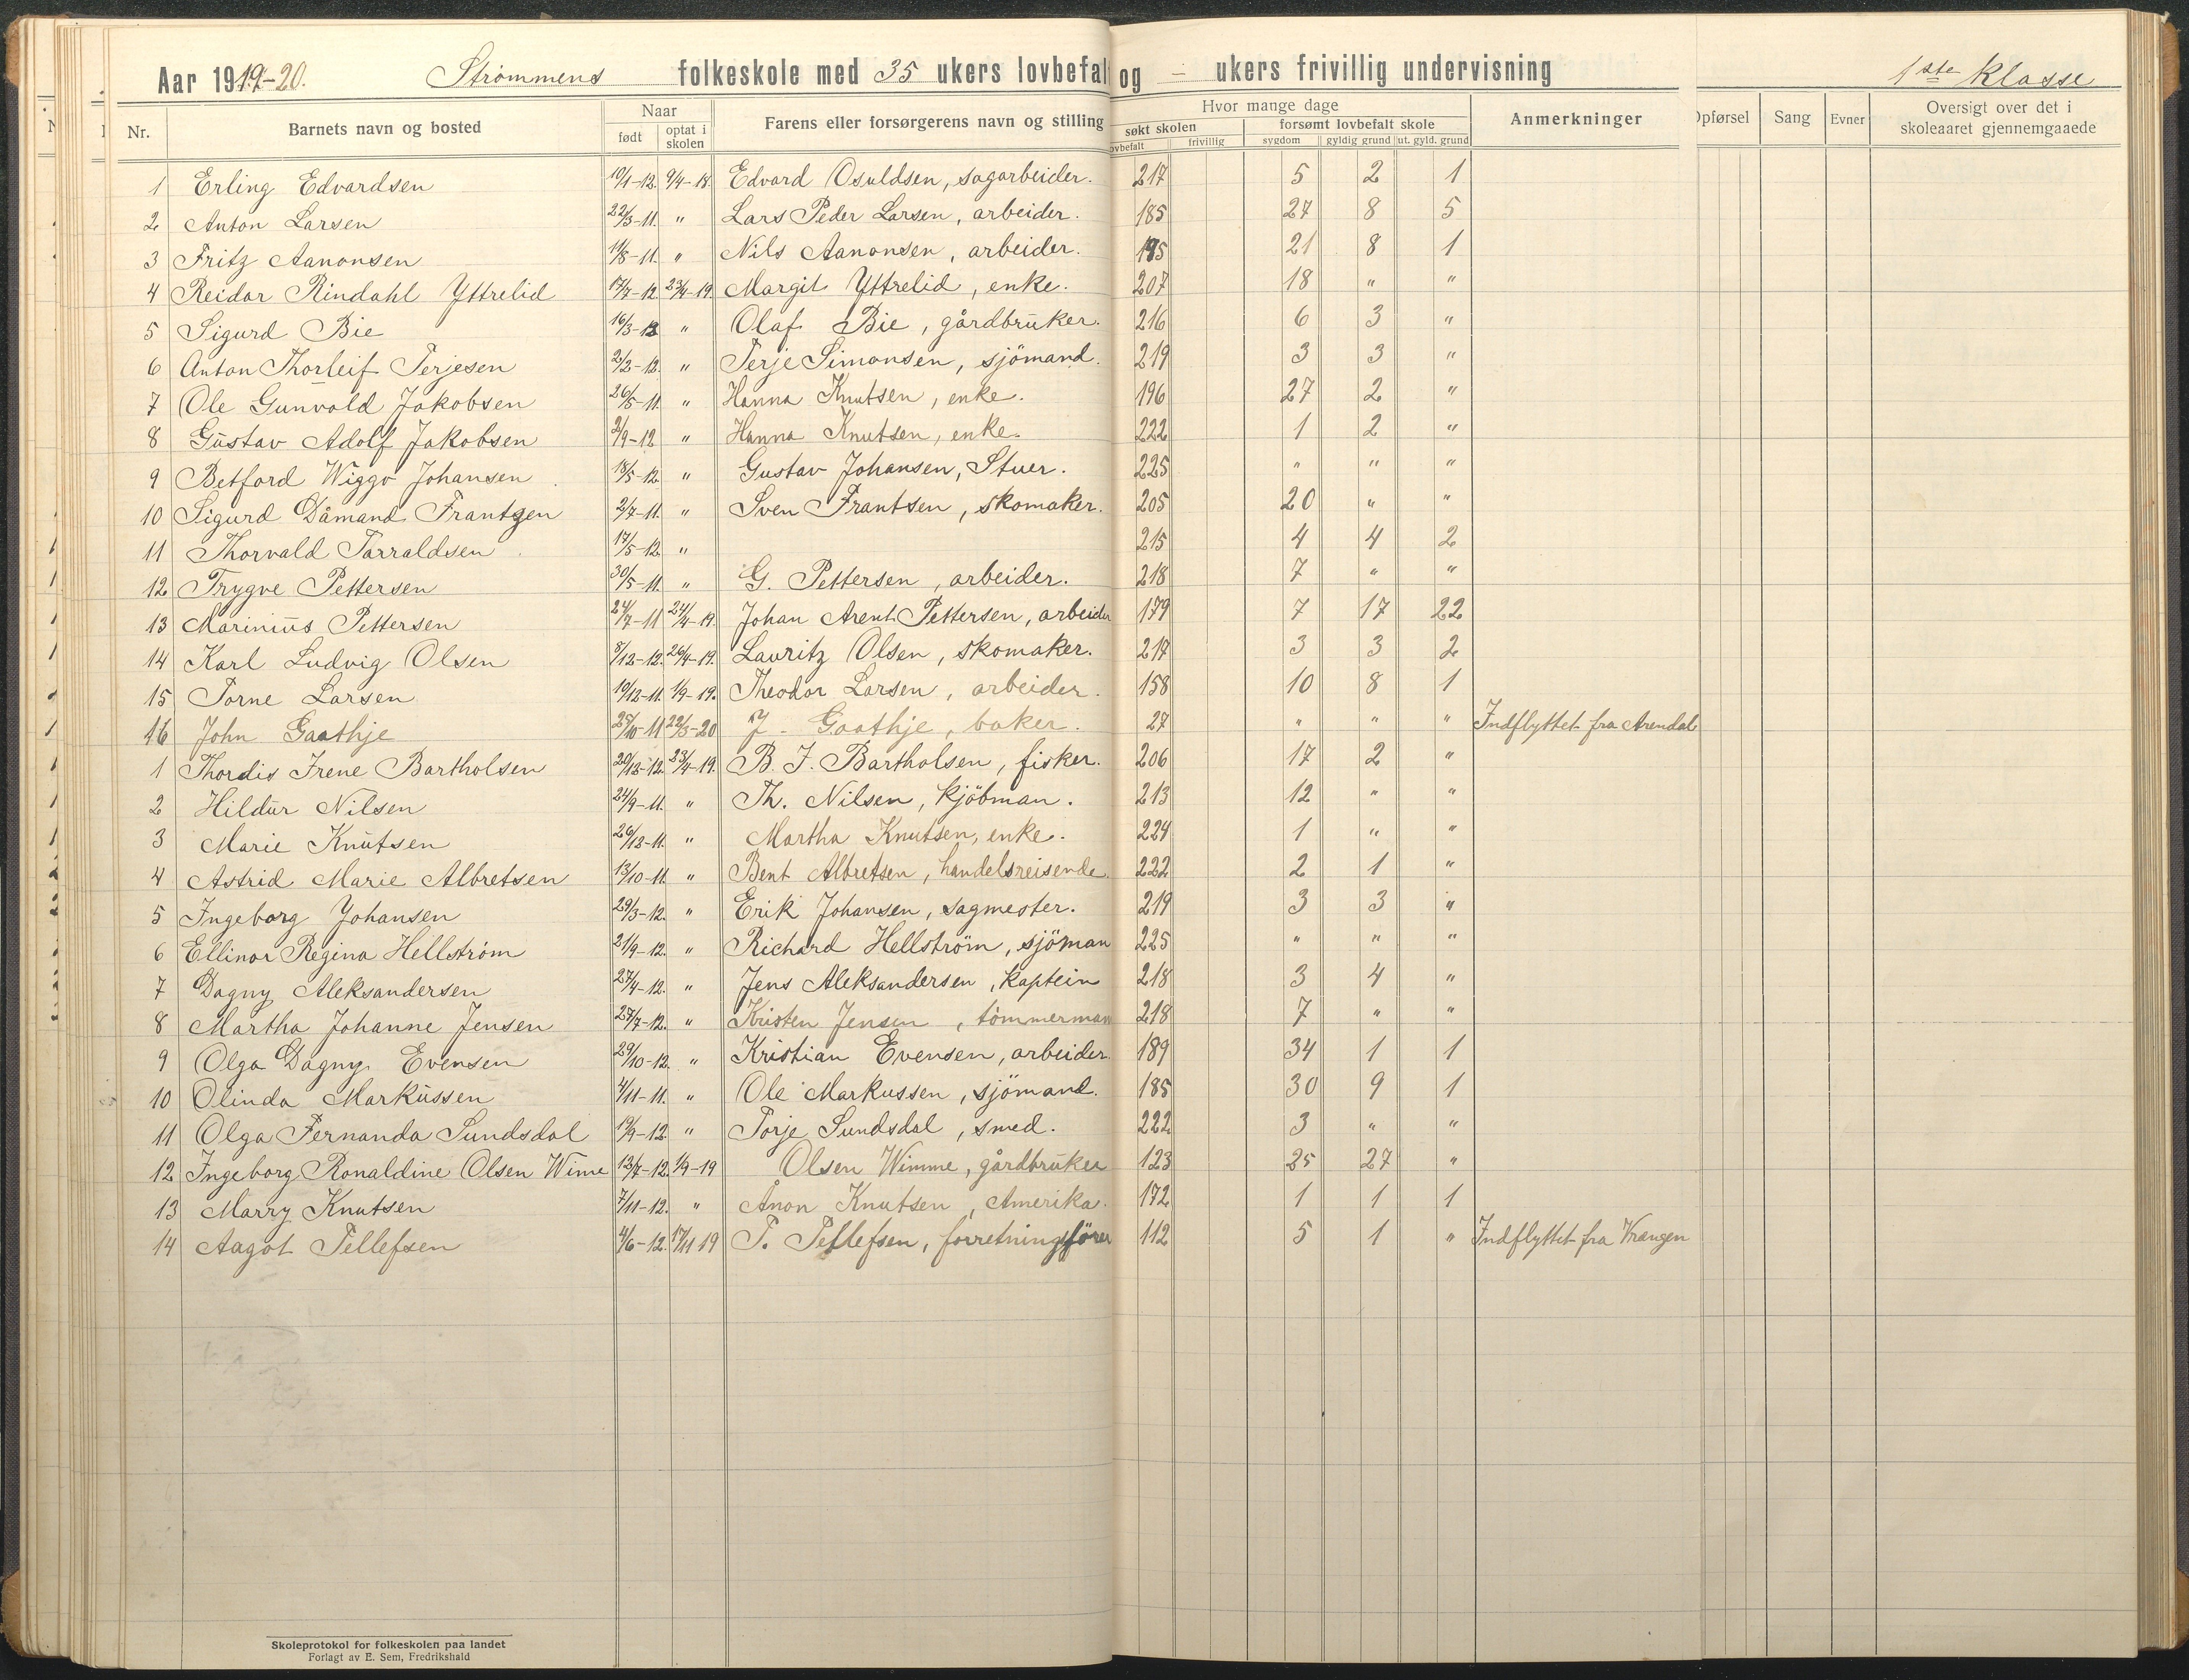 Aar 1919-20. Strømmens folkeskole med 35 ukers lovbefal og - ukers frivillig undervisning 1ste klasse
Nr. Barnets navn og bosted Naar født optat i skolen Farens eller forsørgerens navn og stilling Hvor mange dage søkt skolen ovbefalt frivillig forsømt lovbefalt skole sygdom gyldig grund ut. gyld. grund Anmerkninger Opførsel Sang Evner Oversigt over det i skoleaaret gjennemgaaede
1 Erling Edvardsen 10/1-12. 9/4-18. Edvard Osuldsen, sagarbeider. 217 5 2 1
2 Anton Larsen 22/3-11. " Lars Peder Larsen, arbeider. 185 27 8 5
3 Fritz Aanonsen 11/8-11. " Nils Aanonsen, arbeider. 195 21 8 1
4 Reidar Rindahl Yttrelid 17/7-12 23/4-19. Margit Yttrelid, enke. 207 18 " "
5 Sigurd Bie 16/3-12 " Olaf Bie, gårdbruker. 216 6 3 "
6 Anton Thorleif Terjesen 2/2-12. " Terje Simonsen, sjömand. 219 3 3 "
7 Ole Gunvald Jakobsen 26/5-11. " Hanna Knutsen, enke. 196 27 2 "
8 Gustav Adolf Jakobsen 2/9-12 " Hanna Knutsen, enke. 222 1 2 "
9 Betford Wiggo Johansen 18/5-12. " Gustav Johansen, Stuer. 225 " " "
10 Sigurd Dåmand Frantzen 2/7-11. " Sven Frantsen, skomaker. 205 20 " "
11 Thorvald Tarraldsen 17/5-12. " 215 4 4 2
12 Trygve Pettersen 30/5-11. " G. Pettersen, arbeider. 218 7 " "
13 Marinius Pettersen 24/7-11 24/4-19. Johan Arent Pettersen, arbeider 179 7 17 22
14 Karl Ludvig Olsen 8/12-12. 26/4-19. Lauritz Olsen, skomaker. 217 3 3 2
15 Torne Larsen 10/12-11. 1/9-19. Theodor Larsen, arbeider. 158 10 8 1
16 John Gaathje 25/10-11 22/3-20 J. Gaathje, baker. 27 " " " Indflyttet fra Arendal
1 Thordis Irene Bartholsen 20/12-12. 23/4-19. B. J. Bartholsen, fisker. 206 17 2 "
2 Hildur Nilsen 24/9-11. " Th. Nilsen, kjöbman. 213 12 " "
3 Marie Knutsen 26/12-11. " Martha Knutsen, enke. 224 1 " "
4 Astrid Marie Albretsen 13/10-11. " Bent Albretsen, handelsreisende. 222 2 1 "
5 Ingeborg Johansen 29/3-12. " Erik Johansen, sagmester. 219 3 3 "
6 Ellinor Regina Hellström 21/9-12. " Richard Hellström, sjöman 225 " " "
7 Dagny Aleksandersen 27/4-12. " Jens Aleksandersen, kaptein 218 3 4 "
8 Martha Johanne Jensen 27/7-12. " Kristen Jensen, tömmerman 218 7 " "
9 Olga Dagny Evensen 29/10-12. " Kristian Evensen, arbeider. 189 34 1 1
10 Olinda Markussen 4/11-11. " Ole Markussen, sjömand. 185 30 9 1
11 Olga Fernanda Sundsdal 19/9-12. " Torje Sundsdal, smed. 222 3 " "
12 Ingeborg Ronaldine Olsen Wime 12/7-12. 1/9-19 Olsen Wimme, gårdbruker 123 25 27 "
13 Marry Knutsen 7/11-12. " Ånon Knutsen, Amerika. 172 1 1 1
14 Aagot Tellefsen 4/6-12. 17/11 19 T. Tellefsen, forretningsförer 112 5 1 " Indflyttet fra Vrangen
Skoleprotokol for folkeskolen paa landet
Forlagt av E. Sem, Fredrikshald